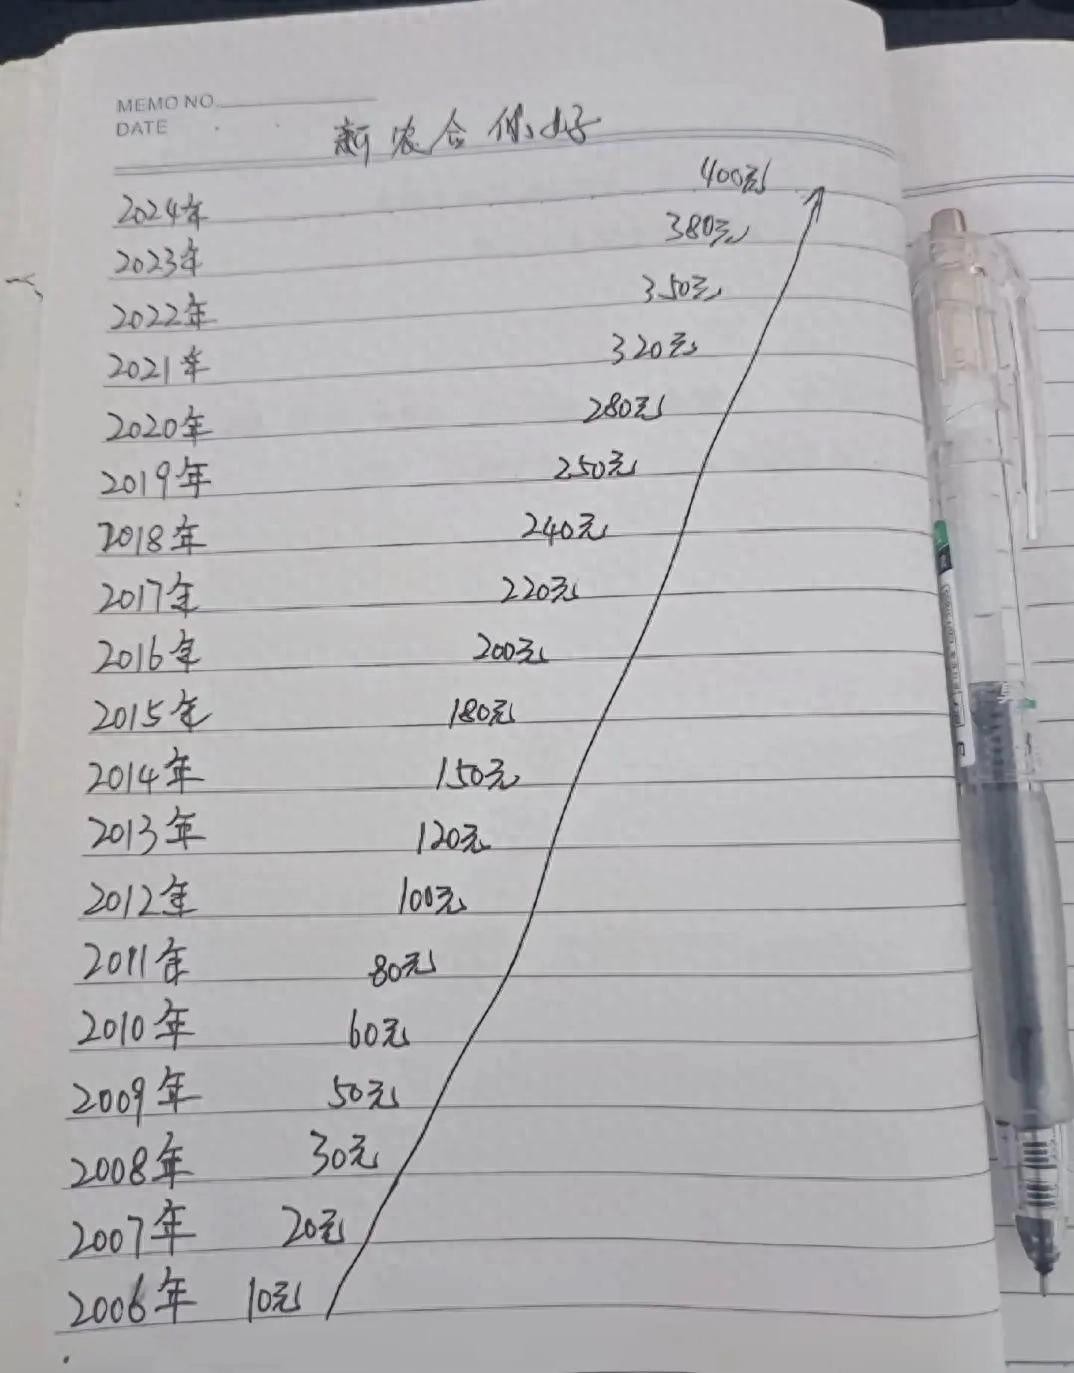 MEMO NO.
DATE
新农合你好
2024年 400元
2023年 380元
2022年 350元
2021年 320元
2020年 280元
2019年 250元
2018年 240元
2017年 220元
2016年 200元
2015年 180元
2014年 150元
2013年 120元
2012年 100元
2011年 80元
2010年 60元
2009年 50元
2008年 30元
2007年 20元
2006年 10元